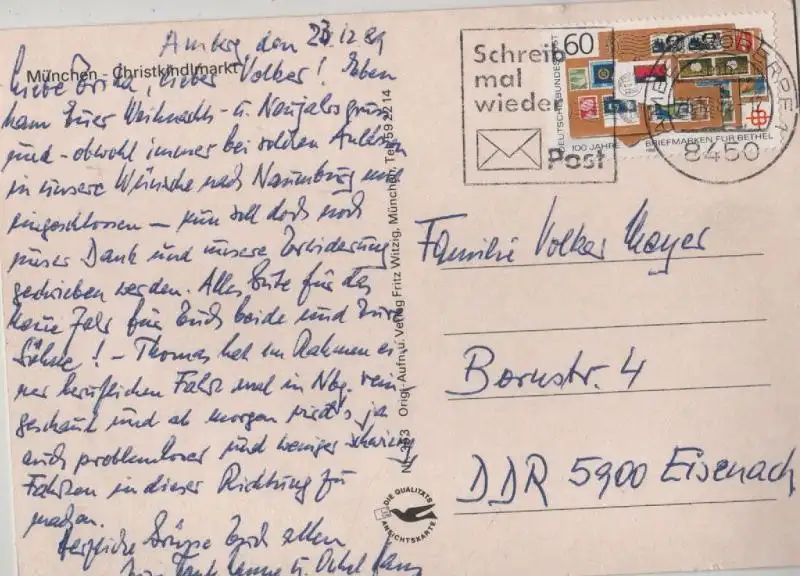 Amberg den 23.12.89
München - Christkindlmarkt
Liebe Erika, lieber Volker! Eben
kam Euer Weihnachts- u. Neujahrsgruss
und - obwohl immer bei solchen Anlässen
in unsere Wünsche nach Naumburg mit
eingeschlossen - nun soll doch noch
unser Dank und unsere Erwiderung
geschrieben werden. Alles Gute für das
Neue Jahr für Euch beide und Eure
Söhne! - Thomas hat im Rahmen ei-
ner beruflichen Fahrt mal in Nbg. rein
geschaut und ab morgen wird's ja
auch problemloser und weniger schwierig
Fahrten in dieser Richtung zu
machen.
Herzliche Grüsse Euch allen
Tante u. Onkel
Nr. Orig.-Aufn. u. Verlag Fritz Witzig, München, Tel. 59 22 14
DIE QUALITÄTS
ANSICHTSKARTE
Schreib
mal
wieder
Post
60
DEUTSCHE BUNDESPOST
100 JAHRE BRIEFMARKEN FÜR BETHEL
8450
Familie Volker Mayer
Bornstr. 4
DDR 5900 Eisenach